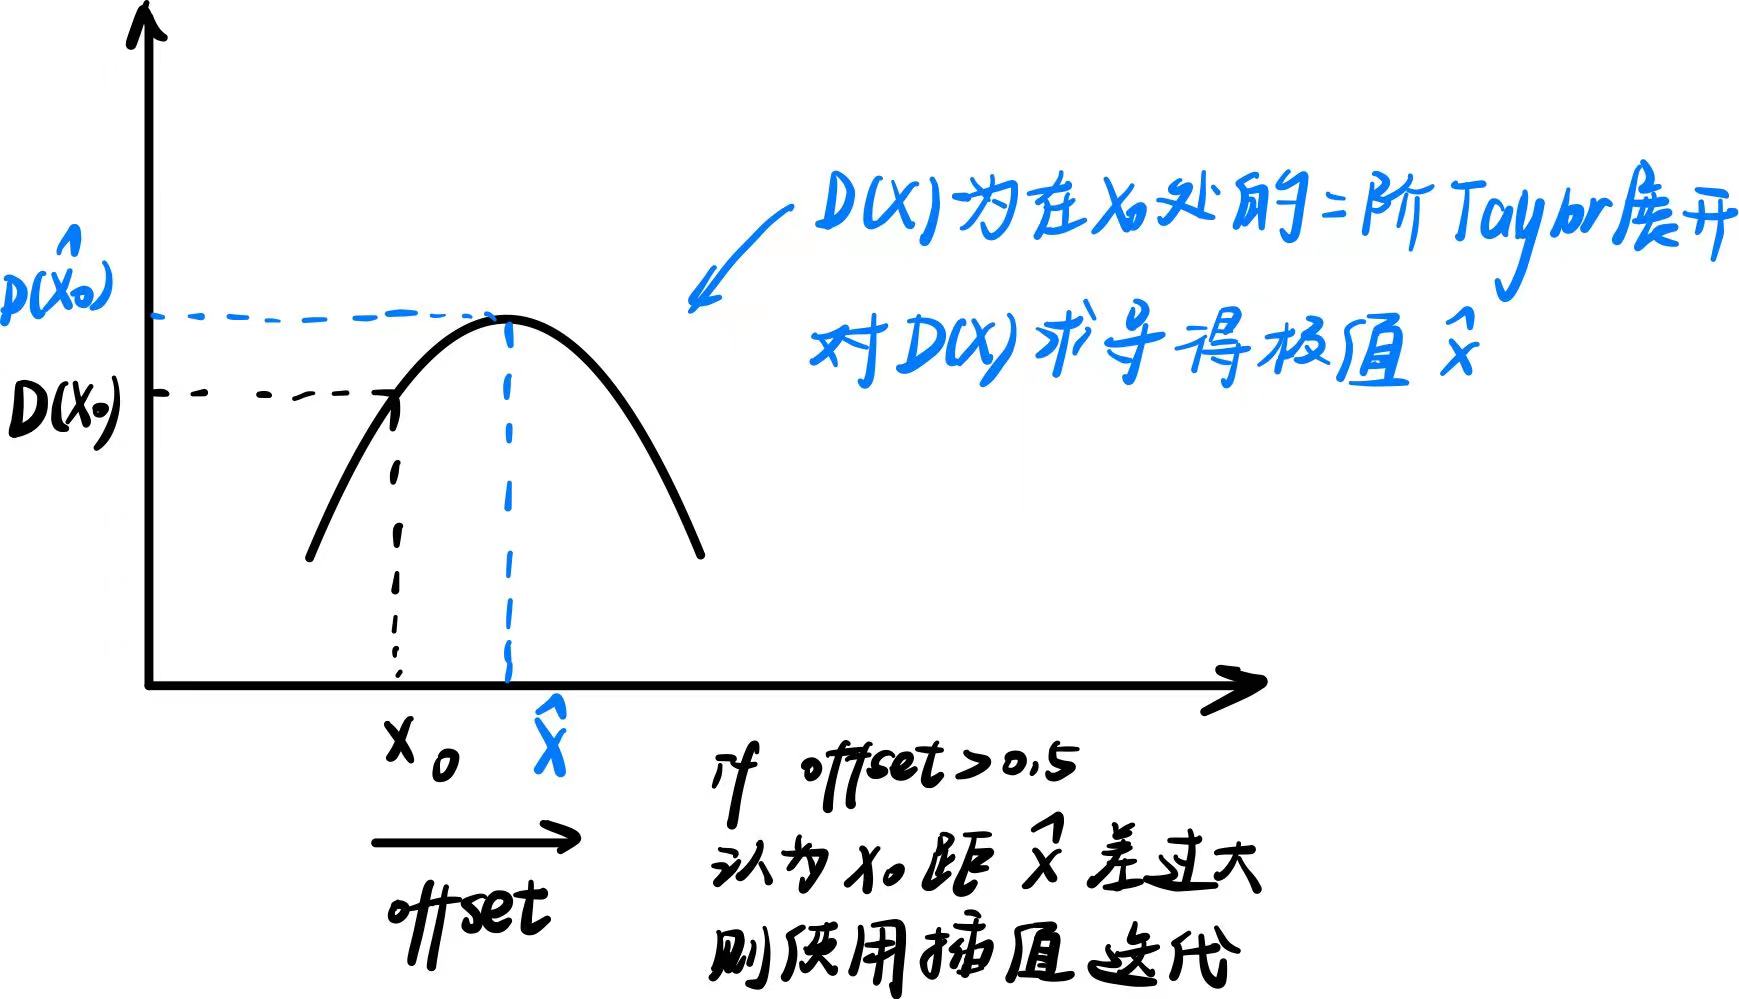 D(X)为在X₀处的二阶Taylor展开
对D(X)求导得极值 x̂
D(x̂₀)
D(X₀)
x₀
x̂
offset
if offset>0.5
认为x₀距 x̂ 差过大
则使用插值迭代